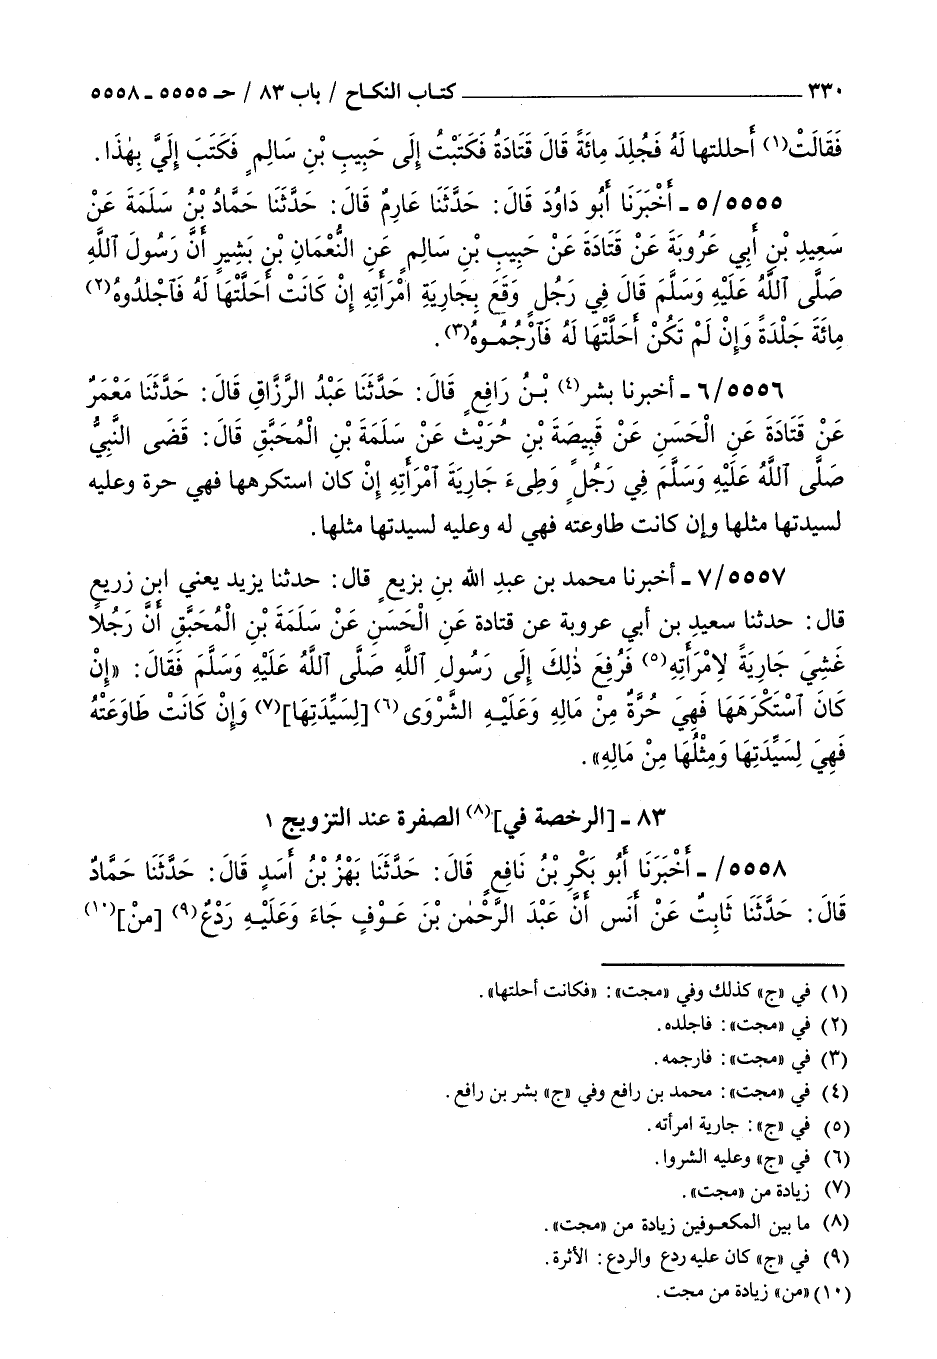 ٣٣٠ ـــــ كتاب النكاح / باب ٨٣ / حـ ٥٥٥٥ ـ ٥٥٥٨
فَقَالَتْ(١) أَحللتها لَهُ فَجُلِدَ مِائَةً قَالَ قَتَادَةُ فَكَتَبْتُ إِلَى حَبِيبِ بْنِ سَالِمٍ فَكَتَبَ إِلَيَّ بِهٰذَا.
٥/٥٥٥٥ ـ أَخْبَرَنَا أَبُو دَاوُدَ قَالَ: حَدَّثَنَا عَارِمٌ قَالَ: حَدَّثَنَا حَمَّادُ بْنُ سَلَمَةَ عَنْ
سَعِيدِ بْنِ أَبِي عَرُوبَةَ عَنْ قَتَادَةَ عَنْ حَبِيبِ بْنِ سَالِمٍ عَنِ النُّعْمَانِ بْنِ بَشِيرٍ أَنَّ رَسُولَ ٱللَّهِ
صَلَّى ٱللَّهُ عَلَيْهِ وَسَلَّمَ قَالَ فِي رَجُلٍ وَقَعَ بِجَارِيَةِ امْرَأَتِهِ إِنْ كَانَتْ أَحَلَّتْهَا لَهُ فَٱجْلدُوهُ(٢)
مِائَةَ جَلْدَةً وَإِنْ لَمْ تَكُنْ أَحَلَّتْهَا لَهُ فَٱرْجُمُوهُ(٣).
٦/٥٥٥٦ ـ أخبرنا بشر(٤) بْنُ رَافِعٍ قَالَ: حَدَّثَنَا عَبْدُ الرَّزَّاقِ قَالَ: حَدَّثَنَا مَعْمَرٌ
عَنْ قَتَادَةَ عَنِ الْحَسَنِ عَنْ قَبِيصَةَ بْنِ حُرَيْثٍ عَنْ سَلَمَةَ بْنِ الْمُحَبَّقِ قَالَ: قَضَى النَّبِيُّ
صَلَّى ٱللَّهُ عَلَيْهِ وَسَلَّمَ فِي رَجُلٍ وَطِىءَ جَارِيَةَ ٱمْرَأَتِهِ إِنْ كان استكرهها فهي حرة وعليه
لسيدتها مثلها وإن كانت طاوعته فهي له وعليه لسيدتها مثلها.
٧/٥٥٥٧ ـ أخبرنا محمد بن عبدِ الله بنِ بزيعٍ قال: حدثنا يزيد يعني ابن زريعٍ
قال: حدثنا سعيد بن أبي عروبة عن قتادة عَنِ الْحَسَنِ عَنْ سَلَمَةَ بْنِ الْمُحَبَّقِ أَنَّ رَجُلًا
غَشِيَ جَارِيَةً لِامْرَأَتِهِ(٥) فَرُفِعَ ذٰلِكَ إِلَى رَسُولِ ٱللَّهِ صَلَّى ٱللَّهُ عَلَيْهِ وَسَلَّمَ فَقَالَ: «إِنْ
كَانَ ٱسْتَكْرَهَهَا فَهِيَ حُرَّةٌ مِنْ مَالِهِ وَعَلَيْهِ الشَّرْوَى(٦) [لِسَيِّدَتِهَا](٧) وَإِنْ كَانَتْ طَاوَعَتْهُ
فَهِيَ لِسَيِّدَتِهَا وَمِثْلُهَا مِنْ مَالِهِ».
٨٣ ـ [الرخصة في](٨) الصفرة عند التزويج ١
٥٥٥٨/ ـ أَخْبَرَنَا أَبُو بَكْرِ بْنُ نَافِعٍ قَالَ: حَدَّثَنَا بَهْزُ بْنُ أَسَدٍ قَالَ: حَدَّثَنَا حَمَّادٌ
قَالَ: حَدَّثَنَا ثَابِتٌ عَنْ أَنَسٍ أَنَّ عَبْدَ الرَّحْمٰنِ بْنَ عَوْفٍ جَاءَ وَعَلَيْهِ رَدْعٌ(٩) [مِنْ](١٠)
(١) في «ج» كذلك وفي «مجت»: «فكانت أحلتها».
(٢) في «مجت»: فاجلده.
(٣) في «مجت»: فارجمه.
(٤) في «مجت»: محمد بن رافع وفي «ج» بشر بن رافع.
(٥) في «ج»: جارية امرأته.
(٦) في «ج» وعليه الشروا.
(٧) زيادة من «مجت».
(٨) ما بين المكعوفين زيادة من «مجت».
(٩) في «ج» كان عليه ردع والردع: الأثرة.
(١٠) «من» زيادة من مجت.